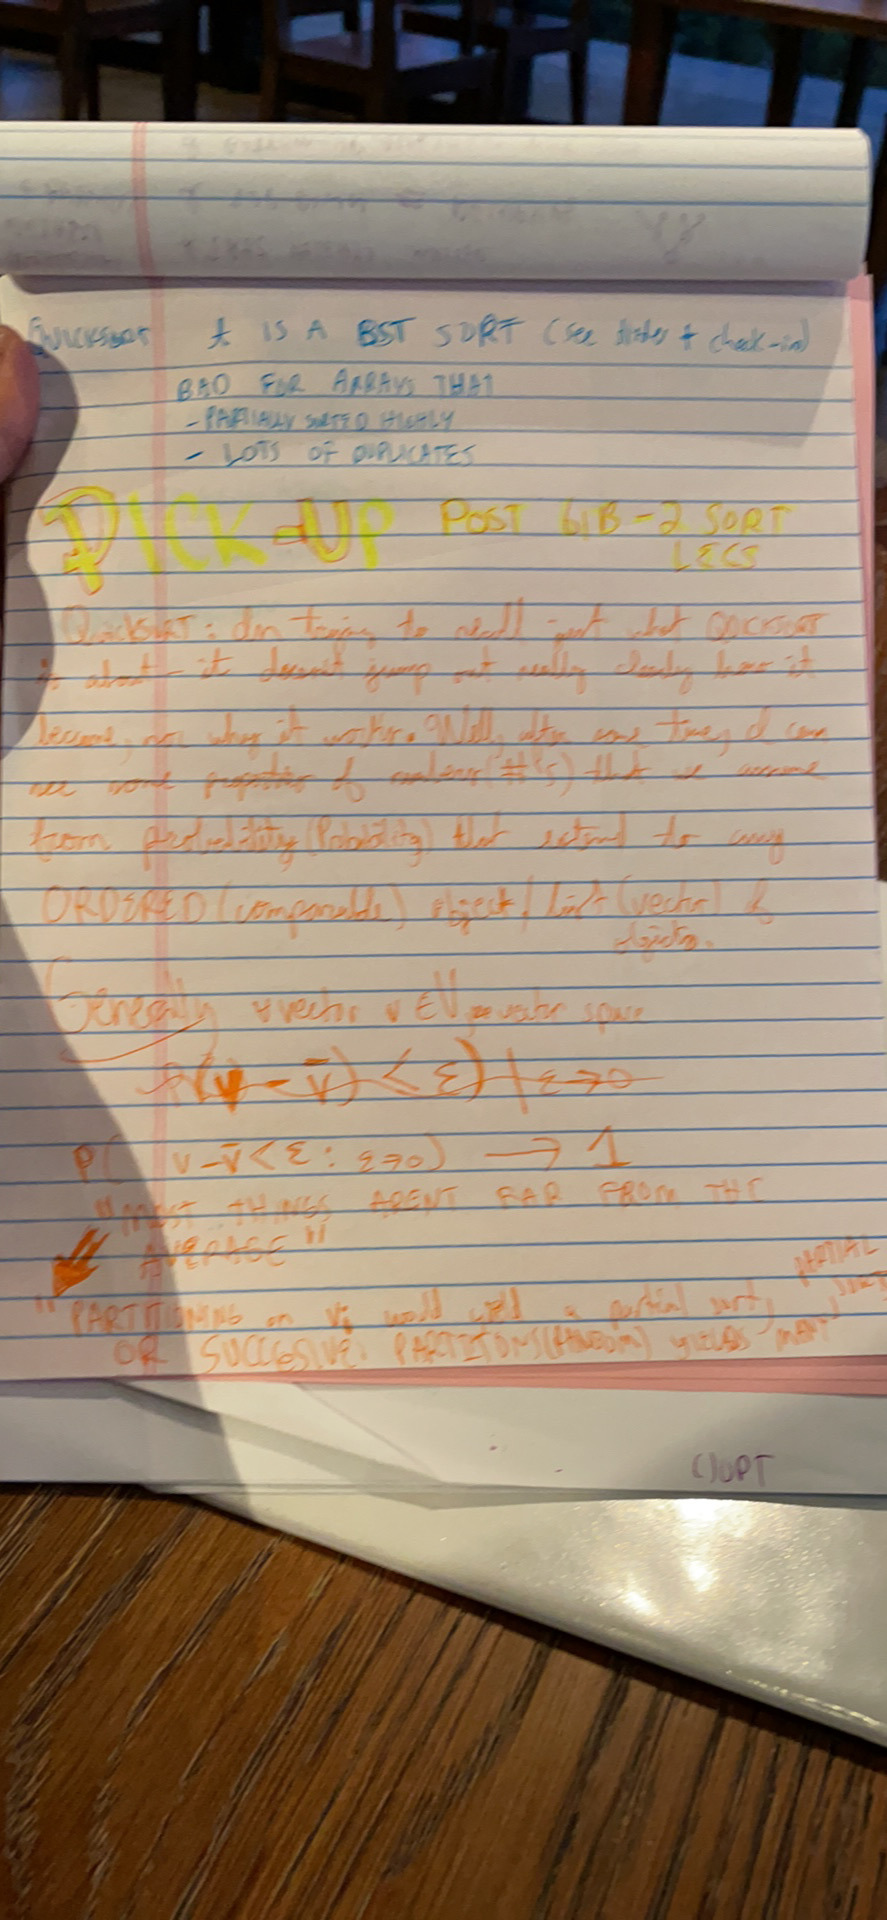 QUICKSORT ★ IS A BST SORT (see slides + check-in)
BAD FOR ARRAYS THAT
- PARTIALLY SORTED HIGHLY
- LOTS OF DUPLICATES
PICK-UP POST 61B-2 SORT
LECS
QUICKSORT: I'm trying to recall just what QUICKSORT
is about - it doesn't jump out really clearly how it
became, nor why it works. Well, after some time, I can
see some properties of numbers (#'s) that we assume
from probability (Probability) that extend to any
ORDERED (comparable) object / list (vector) of
objects.
Generally ∀ vector v ∈ V vector space
P( v - v̄ < ε : ε→0) → 1
"MOST THINGS ARENT FAR FROM THE
AVERAGE"
"PARTITIONING on Vi would yield a partial sort,
OR SUCCESIVE PARTITIONS (RANDOM) YIELDS MANY PARTIAL SORTS
()UPT